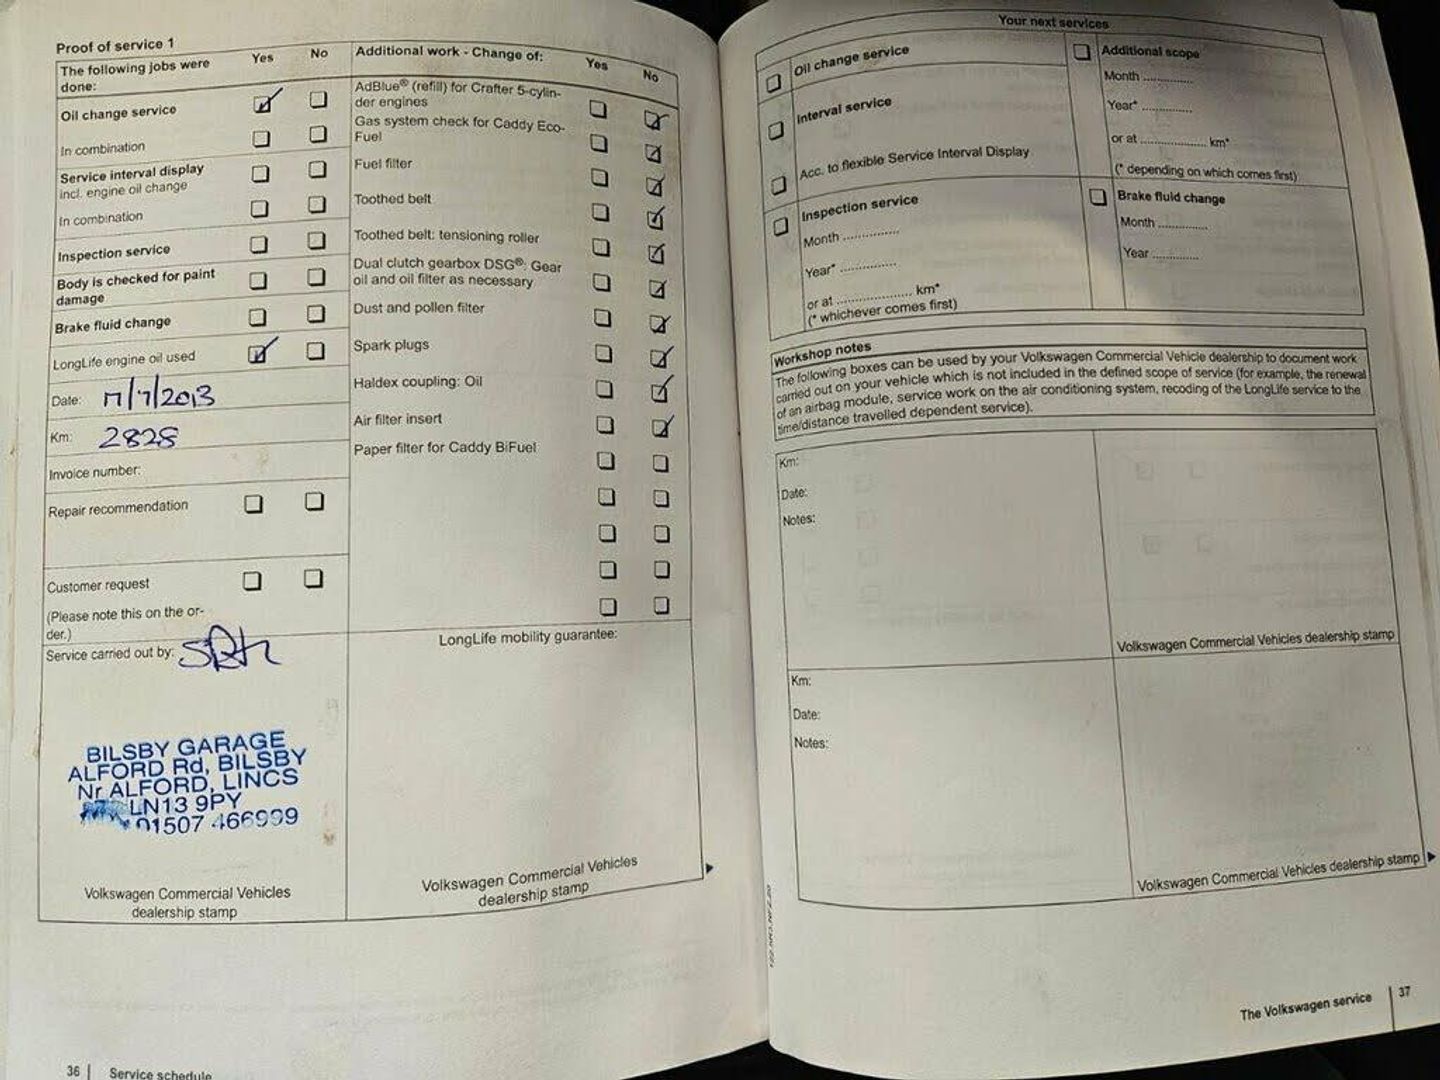 Proof of service 1
The following jobs were
done:
Yes
No
Oil change service
In combination
Service interval display
incl. engine oil change
In combination
Inspection service
Body is checked for paint
damage
Brake fluid change
LongLife engine oil used
Date: 17/7/2013
Km: 2828
Invoice number:
Repair recommendation
Customer request
(Please note this on the or-
der.)
Service carried out by:
BILSBY GARAGE
ALFORD Rd, BILSBY
Nr ALFORD, LINCS
LN13 9PY
01507 466999
Volkswagen Commercial Vehicles
dealership stamp
Additional work - Change of:
Yes
No
AdBlue® (refill) for Crafter 5-cylin-
der engines
Gas system check for Caddy Eco-
Fuel
Fuel filter
Toothed belt
Toothed belt: tensioning roller
Dual clutch gearbox DSG®: Gear
oil and oil filter as necessary
Dust and pollen filter
Spark plugs
Haldex coupling: Oil
Air filter insert
Paper filter for Caddy BiFuel
LongLife mobility guarantee:
Volkswagen Commercial Vehicles
dealership stamp
36 | Service schedule
Your next services
Oil change service
Interval service
Acc. to flexible Service Interval Display
Inspection service
Month ..............
Year* ..............
or at ................... km*
(* whichever comes first)
Additional scope
Month .............
Year* .............
or at ................. km*
(* depending on which comes first)
Brake fluid change
Month .............
Year ............
Workshop notes
The following boxes can be used by your Volkswagen Commercial Vehicle dealership to document work
carried out on your vehicle which is not included in the defined scope of service (for example, the renewal
of an airbag module, service work on the air conditioning system, recoding of the LongLife service to the
time/distance travelled dependent service).
Km:
Date:
Notes:
Volkswagen Commercial Vehicles dealership stamp
Km:
Date:
Notes:
Volkswagen Commercial Vehicles dealership stamp
The Volkswagen service | 37